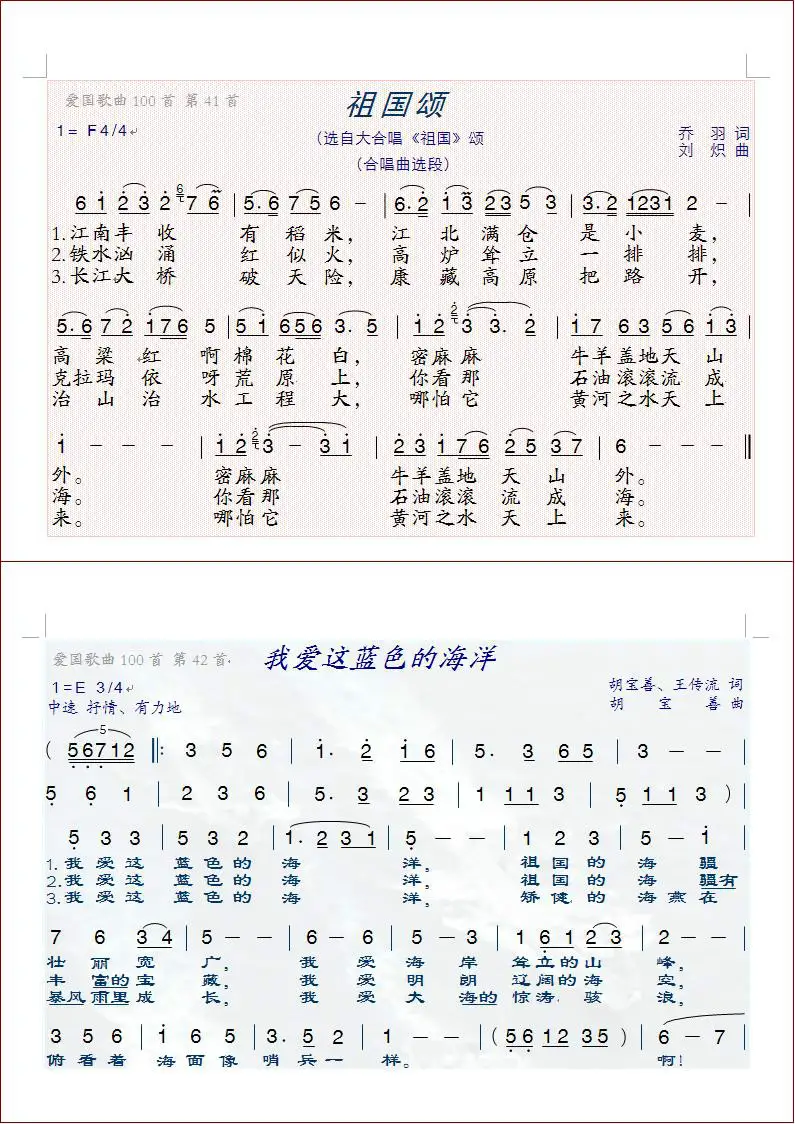 爱国歌曲100首 第41首
祖国颂
1= F 4/4
(选自大合唱《祖国》颂
(合唱曲选段)
乔 羽 词
刘 炽 曲
6 1 2 3 2 6 7 6 | 5. 6 7 5 6 - | 6. 2 1 3 2 3 5 3 | 3. 2 1231 2 - |
1.江南丰 收 有 稻 米, 江 北 满 仓 是 小 麦,
2.铁水汹 涌 红 似 火, 高 炉 耸 立 一 排 排,
3.长江大 桥 破 天 险, 康 藏 高 原 把 路 开,
5. 6 7 2 1 7 6 5 | 5 1 6 5 6 3. 5 | 1 2 2 3 3. 2 | 1 7 6 3 5 6 1 3 |
高 粱 红 啊 棉 花 白, 密麻 麻 牛羊盖地天 山
克拉玛 依 呀 荒 原 上, 你看 那 石油滚滚流 成
治 山 治 水 工 程 大, 哪怕 它 黄河之水天 上
1 - - - | 1 2 2 3 - 3 1 | 2 3 1 7 6 2 5 3 7 | 6 - - - ‖
外。 密麻麻 牛羊盖地 天 山 外。
海。 你看那 石油滚滚 流 成 海。
来。 哪怕它 黄河之水 天 上 来。
爱国歌曲100首 第42首
我爱这蓝色的海洋
1=E 3/4
中速 抒情、有力地
胡宝善、王传流 词
胡 宝 善 曲
5
( 5 6 7 1 2 ‖: 3 5 6 | 1. 2 1 6 | 5. 3 6 5 | 3 - - |
5 6 1 | 2 3 6 | 5. 3 2 3 | 1 1 1 3 | 5 1 1 3 ) |
5 3 3 | 5 3 2 | 1. 2 3 1 | 5 - - | 1 2 3 | 5 - 1 |
1.我 爱 这 蓝 色 的 海 洋, 祖 国 的 海 疆
2.我 爱 这 蓝 色 的 海 洋, 祖 国 的 海 疆有
3.我 爱 这 蓝 色 的 海 洋, 矫 健 的 海 燕 在
7 6 3 4 | 5 - - | 6 - 6 | 5 - 3 | 1 6 1 2 3 | 2 - - |
壮 丽 宽 广, 我 爱 海 岸 耸立的 山 峰,
丰 富的 宝 藏, 我 爱 明 朗 辽阔的 海 空,
暴风 雨里 成 长, 我 爱 大 海的 惊涛 骇 浪,
3 5 6 | 1 6 5 | 3. 5 2 | 1 - - | ( 5 6 1 2 3 5 ) | 6 - 7
俯 看 着 海 面 像 哨 兵 一 样。 啊!